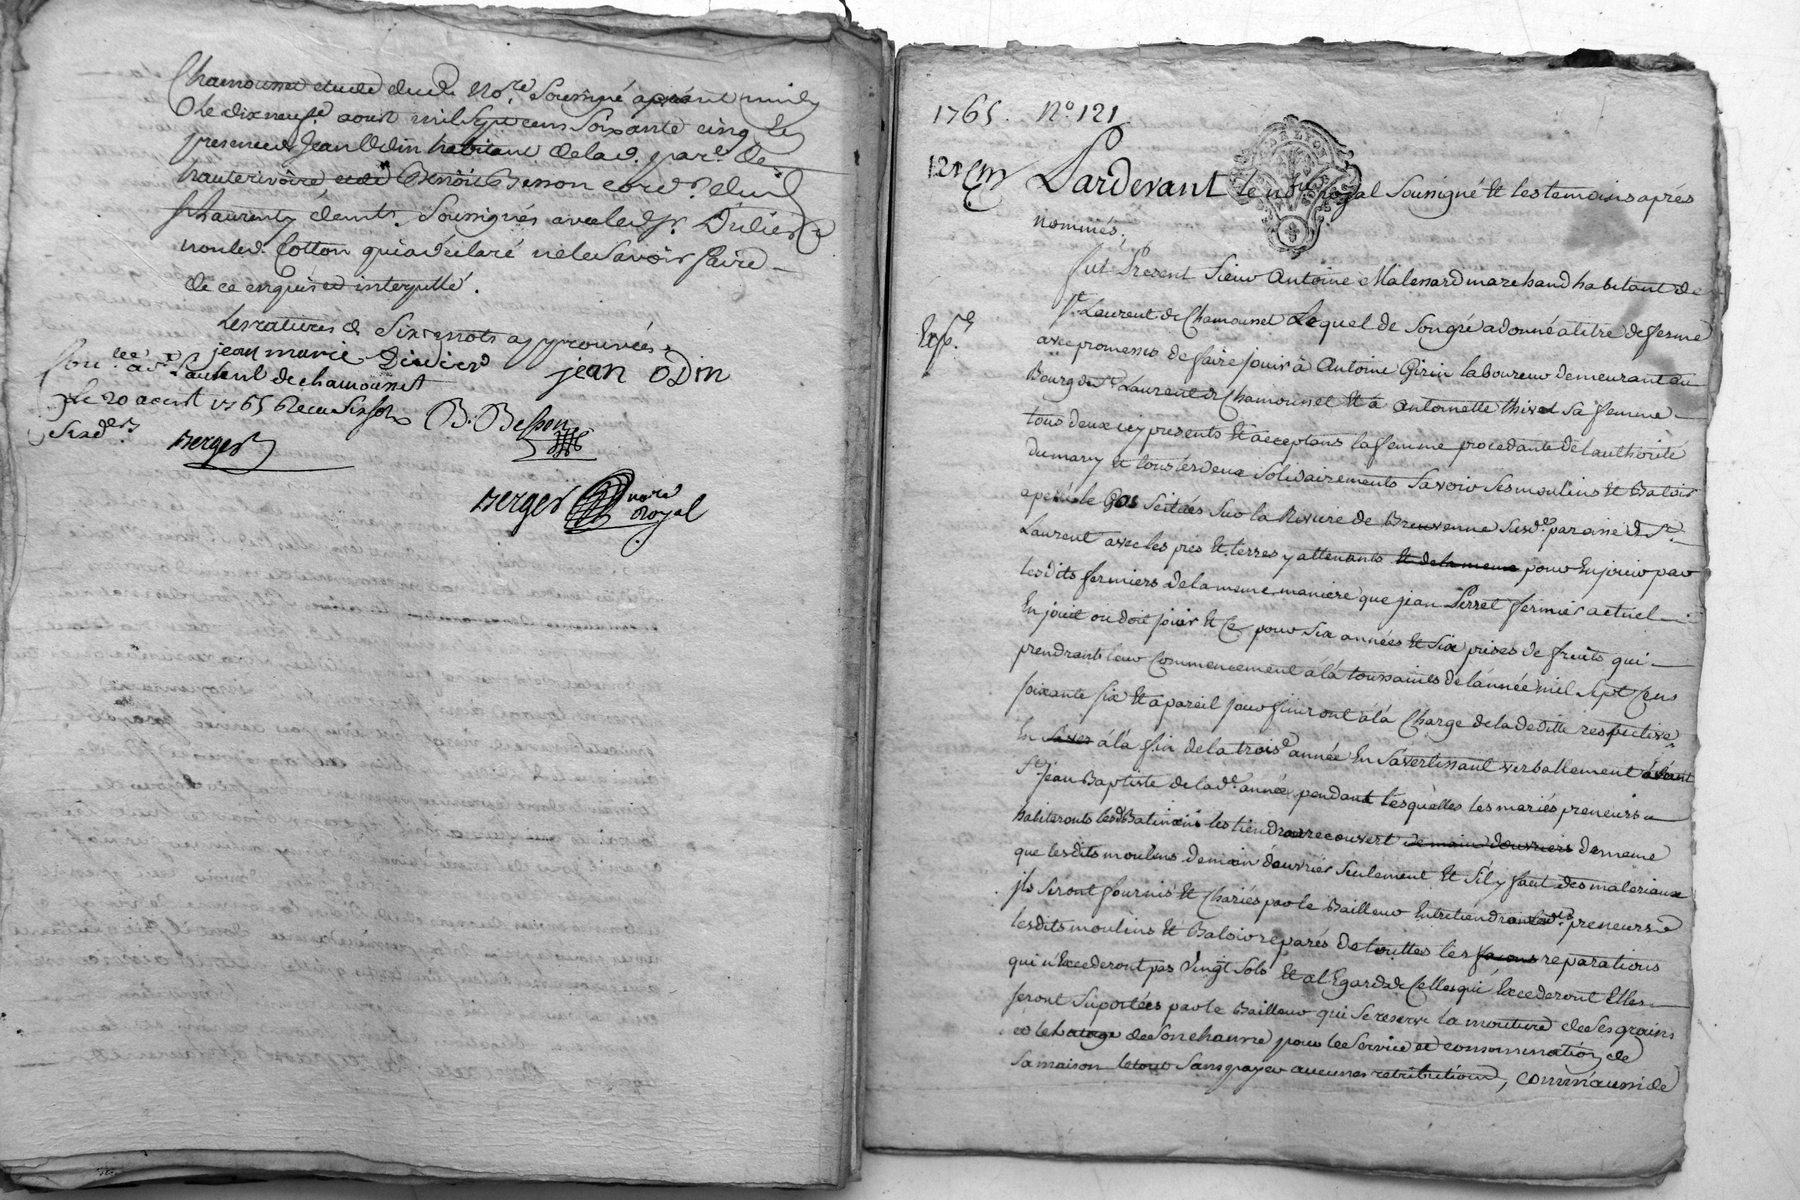 Chamousset etude dud. No.re Soussigné avant midy
le dixneufe aoust mil Sept cens Soixante cinq En
presence de Jean Odin habitant de lad. par.e de
hauterivoire et de Benoit Besson cord.r dud.
St Laurent, demts. Soussignés avec led. Sr. Didier
non led. Cotton qui a declaré ne le Savoir faire
de ce enquis et interpellé.
Les ratures de Six mots approuvées.
jean marie Didier
jean odin
Con.lee a St Laurent de chamousset
Le 20 aoust 1765 Recu Six sols
Six d.rs
B. Besson
Berger
Berger nore Royal
1765. No. 121
121 Cm Pardevant le no.re Royal Soussigné Et les temoins après
nommés,
fut Present Sieur Antoine Malessard marchand habitant de
St. Laurent de Chamousset Lequel de Son gré a donné a titre de ferme
Exp.é
avec promesses de faire jouir à Antoine Girin laboureur demeurant au
Bourg de St Laurent de Chamousset Et à Antoinette thivel Sa femme
tous deux icy presents Et acceptans la femme procedante de l'authorité
du mary et tous les deux Solidairements Savoir Ses moulins Et Batoir
apellés le Gas Seitüés Sur la Riviere de Brevenne Susd.e paroisse de St.
Laurent avec les prés Et terres y attenants Et de la meme pour En jouir par
lesdits fermiers de la meme maniere que jean Perret fermier actuel
En jouit ou doit joüir Et Ce pour Six années Et Six prises de fruits qui
prendronts leur Commencement à la toussaints de l'année mil Sept Cens
Soixante Six Et a pareil jour finiront à la Charge de la deditte respective
En Saver à la fin de la trois.e année En S'avertissant verballement avant
St jean Baptiste de lad.e année, pendant lesquelles les mariés preneurs
habiteronts lesd. Batimens les tiendront recouvert de main d'ouvriers de meme
que lesdits moulins de main d'ouvriés Seulement Et S'il y faut des materiaux
ils Seront fournis Et Chariés par le Bailleur Entretiendront lesd.s preneurs
lesdits moulins Et Batoir reparés de touttes les façons reparations
qui n'Excederont pas Vingt Sols Et al Egard de Celles qui Excederont Elles
Seront Suportées par le Bailleur qui Se reserve la mouture de Ses grains
et le batage de Son chanvre pour le Service et consommation de
Sa maison le tout Sans payer aucunes retributions, comm'aussi de